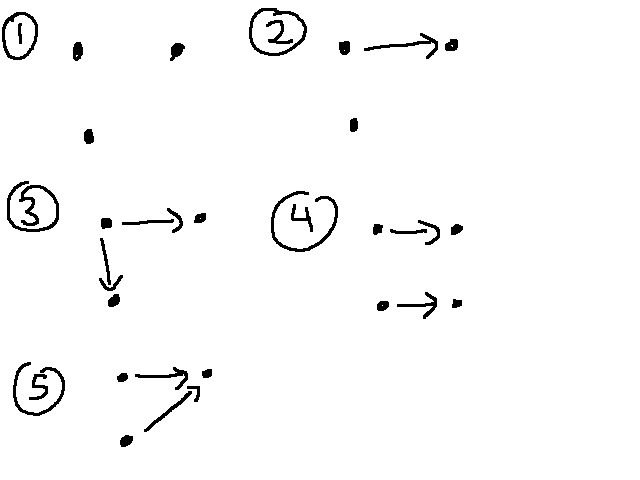 1 2
3 4
5